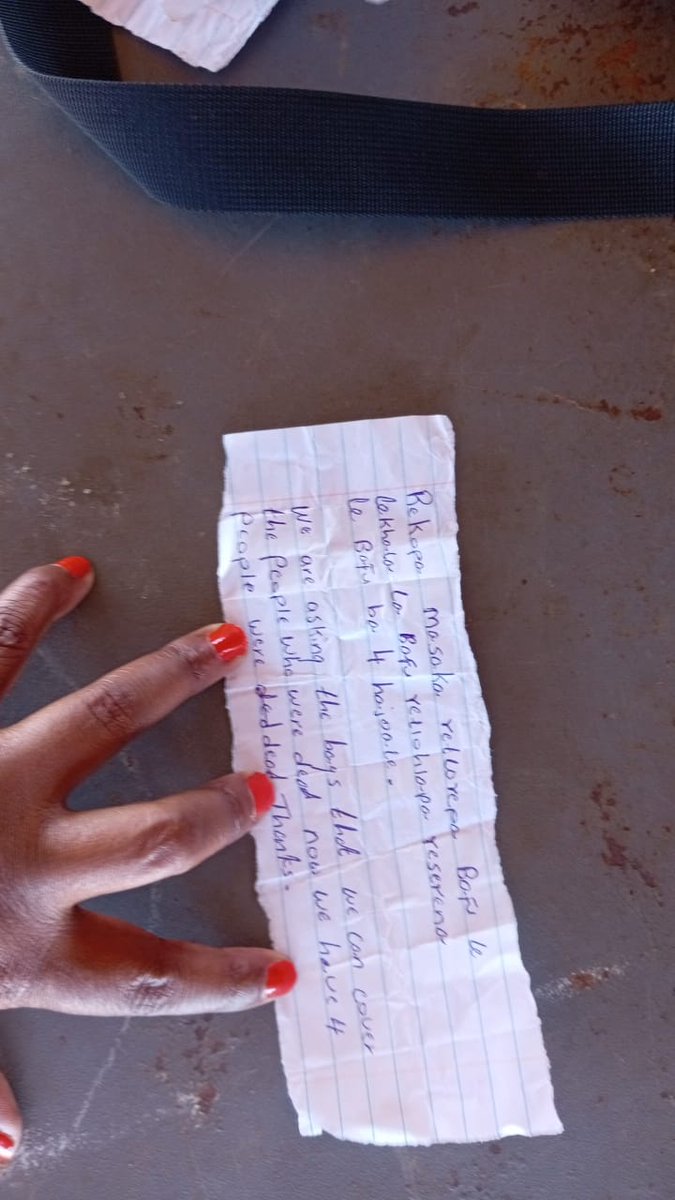 Rekopa masaka rellorepa Bafu le
lakhala La Bafu rellohlapa reserena
le Bafu ba 4 hajoale.
We are asking the bags that we can cover
the people who were dead now we have 4
people were deddead Thanks.